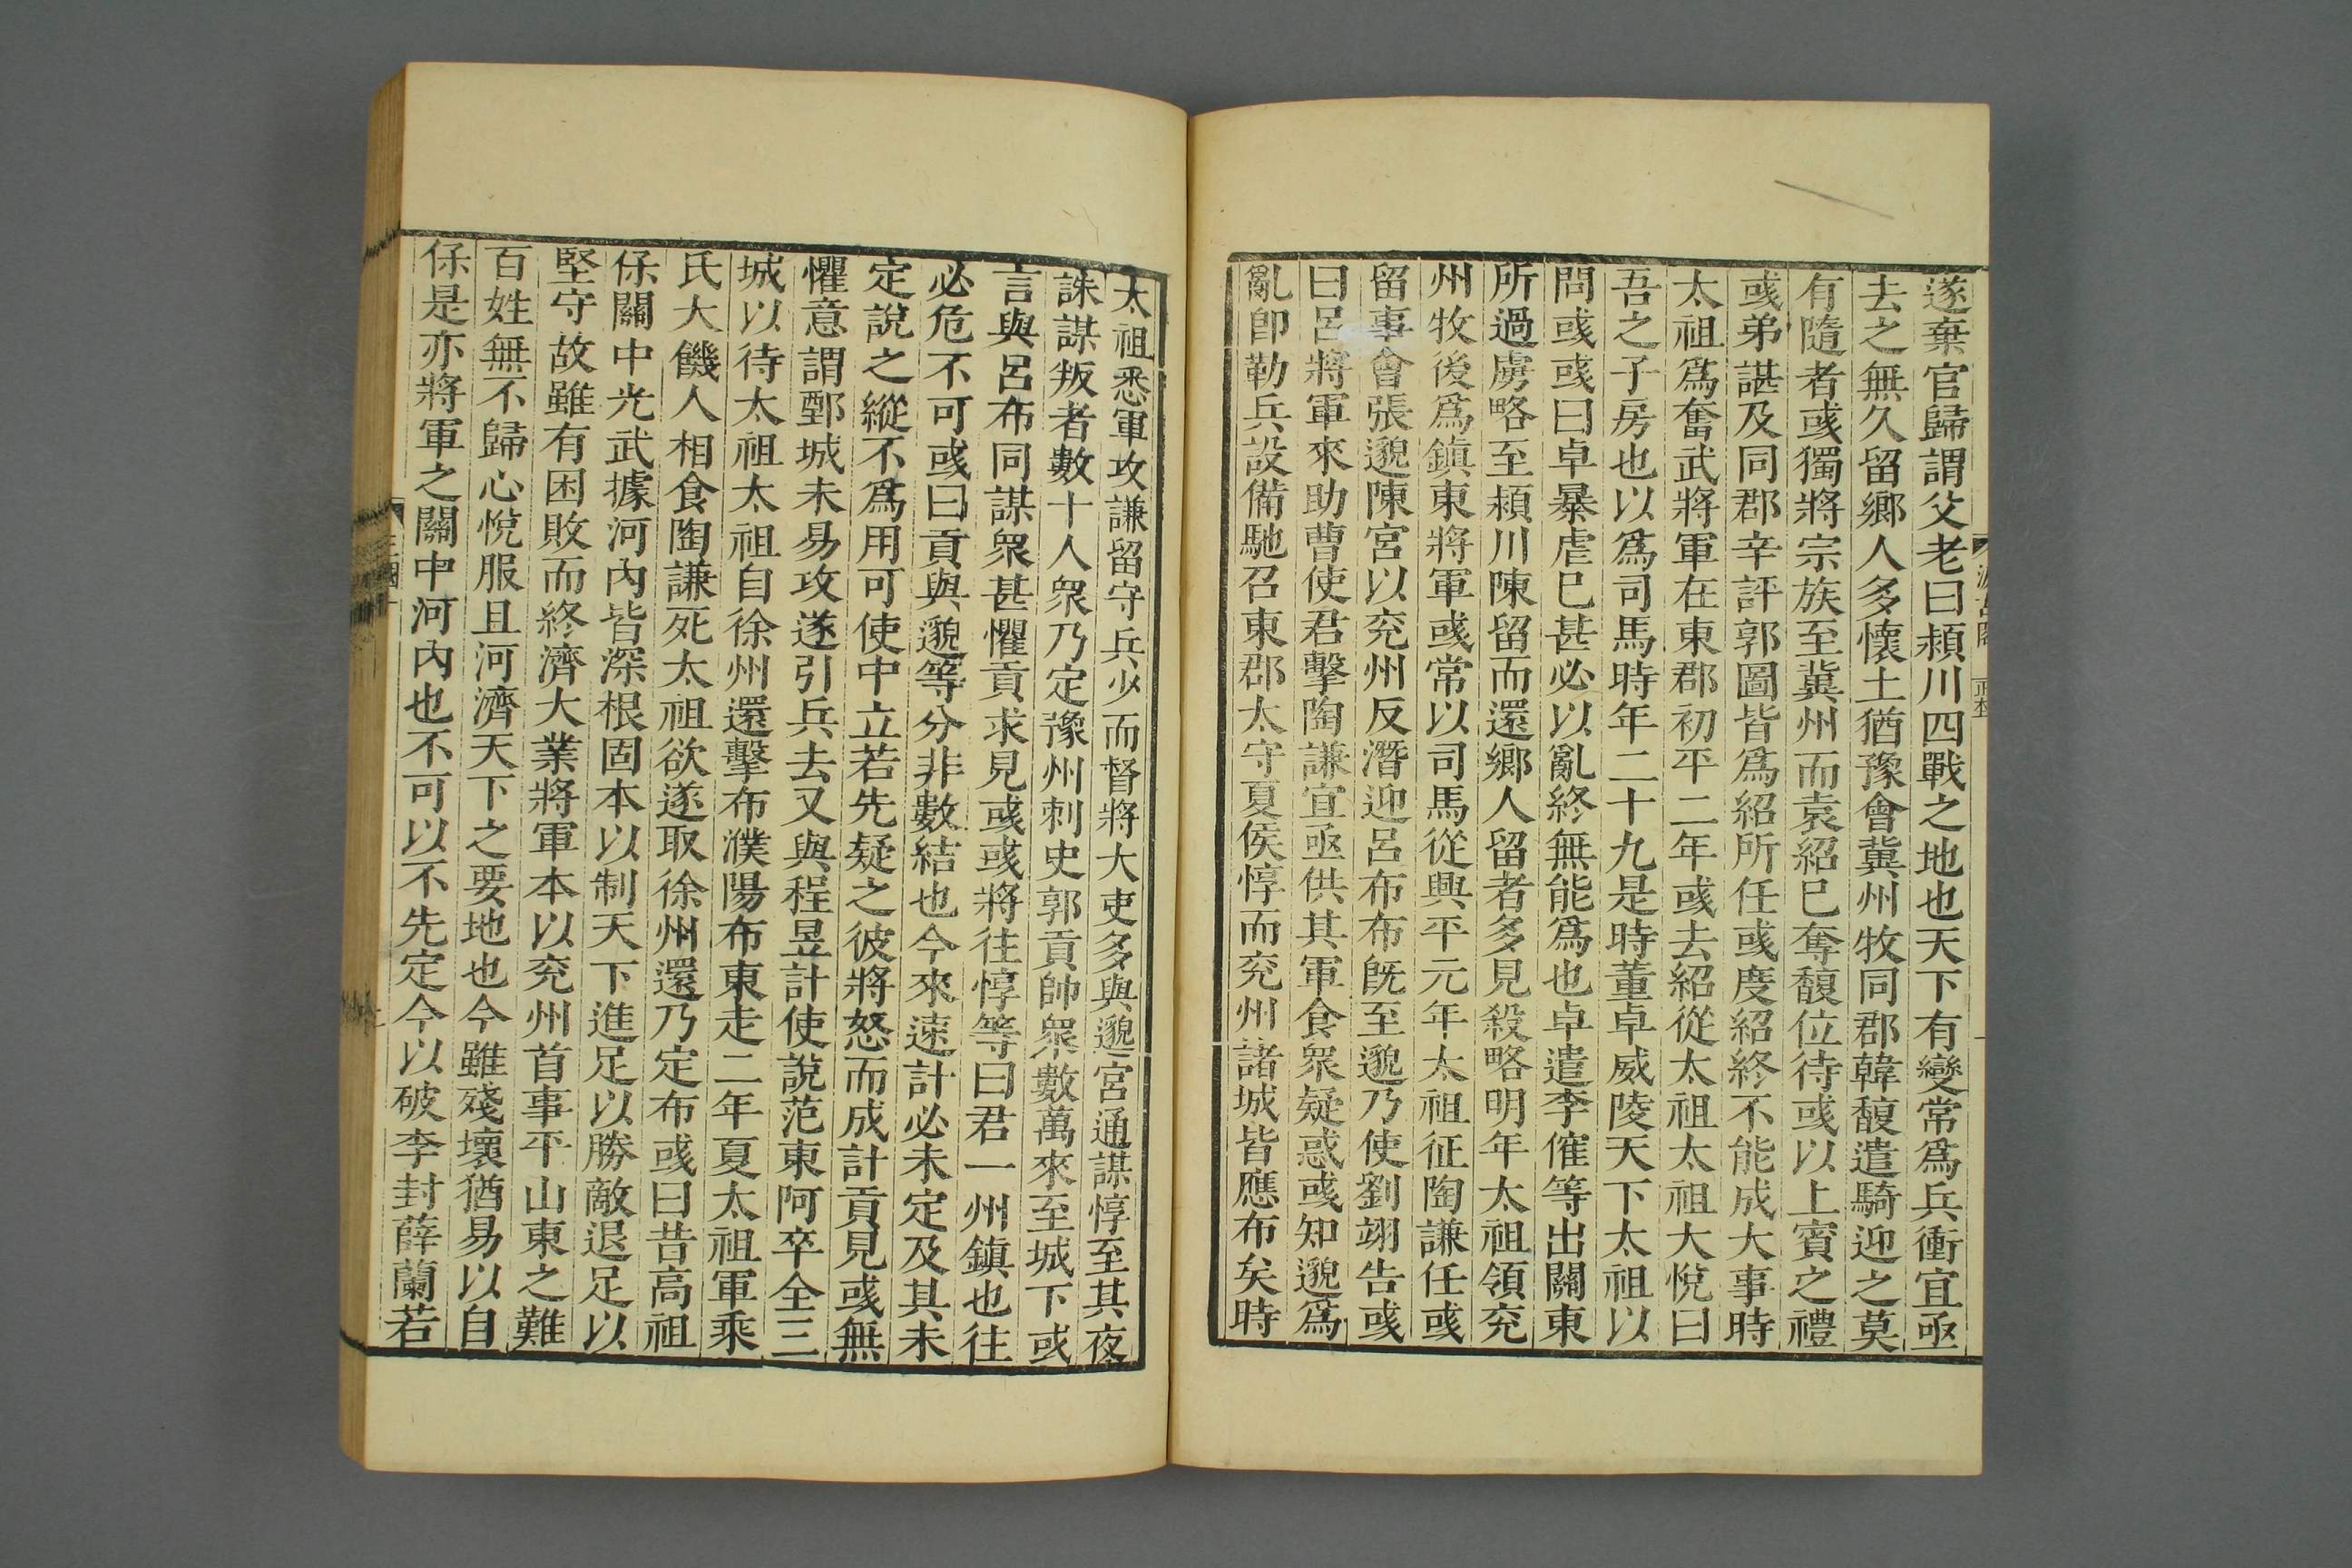 遂棄官歸謂父老曰潁川四戰之地也天下有變常爲兵衝宜亟
去之無久留鄉人多懷土猶豫會冀州牧同郡韓馥遣騎迎之莫
有隨者彧獨將宗族至冀州而袁紹已奪馥位待彧以上賓之禮
彧弟諶及同郡辛評郭圖皆爲紹所任彧度紹終不能成大事時
太祖爲奮武將軍在東郡初平二年彧去紹從太祖太祖大悅曰
吾之子房也以爲司馬時年二十九是時董卓威陵天下太祖以
問彧彧曰卓暴虐已甚必以亂終無能爲也卓遣李傕等出關東
所過虜略至潁川陳留而還鄉人留者多見殺略明年太祖領兗
州牧後爲鎮東將軍彧常以司馬從興平元年太祖征陶謙任彧
留事會張邈陳宮以兗州反潛迎呂布布旣至邈乃使劉翊告彧
曰呂將軍來助曹使君擊陶謙宜亟供其軍食衆疑惑彧知邈爲
亂卽勒兵設備馳召東郡太守夏侯惇而兗州諸城皆應布矣時
太祖悉軍攻謙留守兵少而督將大吏多與邈宮通謀惇至其夜
誅謀叛者數十人衆乃定豫州刺史郭貢帥衆數萬來至城下或
言與呂布同謀衆甚懼貢求見彧彧將往惇等曰君一州鎮也往
必危不可彧曰貢與邈等分非數結也今來速計必未定及其未
定說之縱不爲用可使中立若先疑之彼將怒而成計貢見彧無
懼意謂鄄城未易攻遂引兵去又與程昱計使說范東阿卒全三
城以待太祖太祖自徐州還擊布濮陽布東走二年夏太祖軍乘
氏大饑人相食陶謙死太祖欲遂取徐州還乃定布彧曰昔高祖
保關中光武據河內皆深根固本以制天下進足以勝敵退足以
堅守故雖有困敗而終濟大業將軍本以兗州首事平山東之難
百姓無不歸心悅服且河濟天下之要地也今雖殘壞猶易以自
保是亦將軍之關中河內也不可以不先定今以破李封薛蘭若